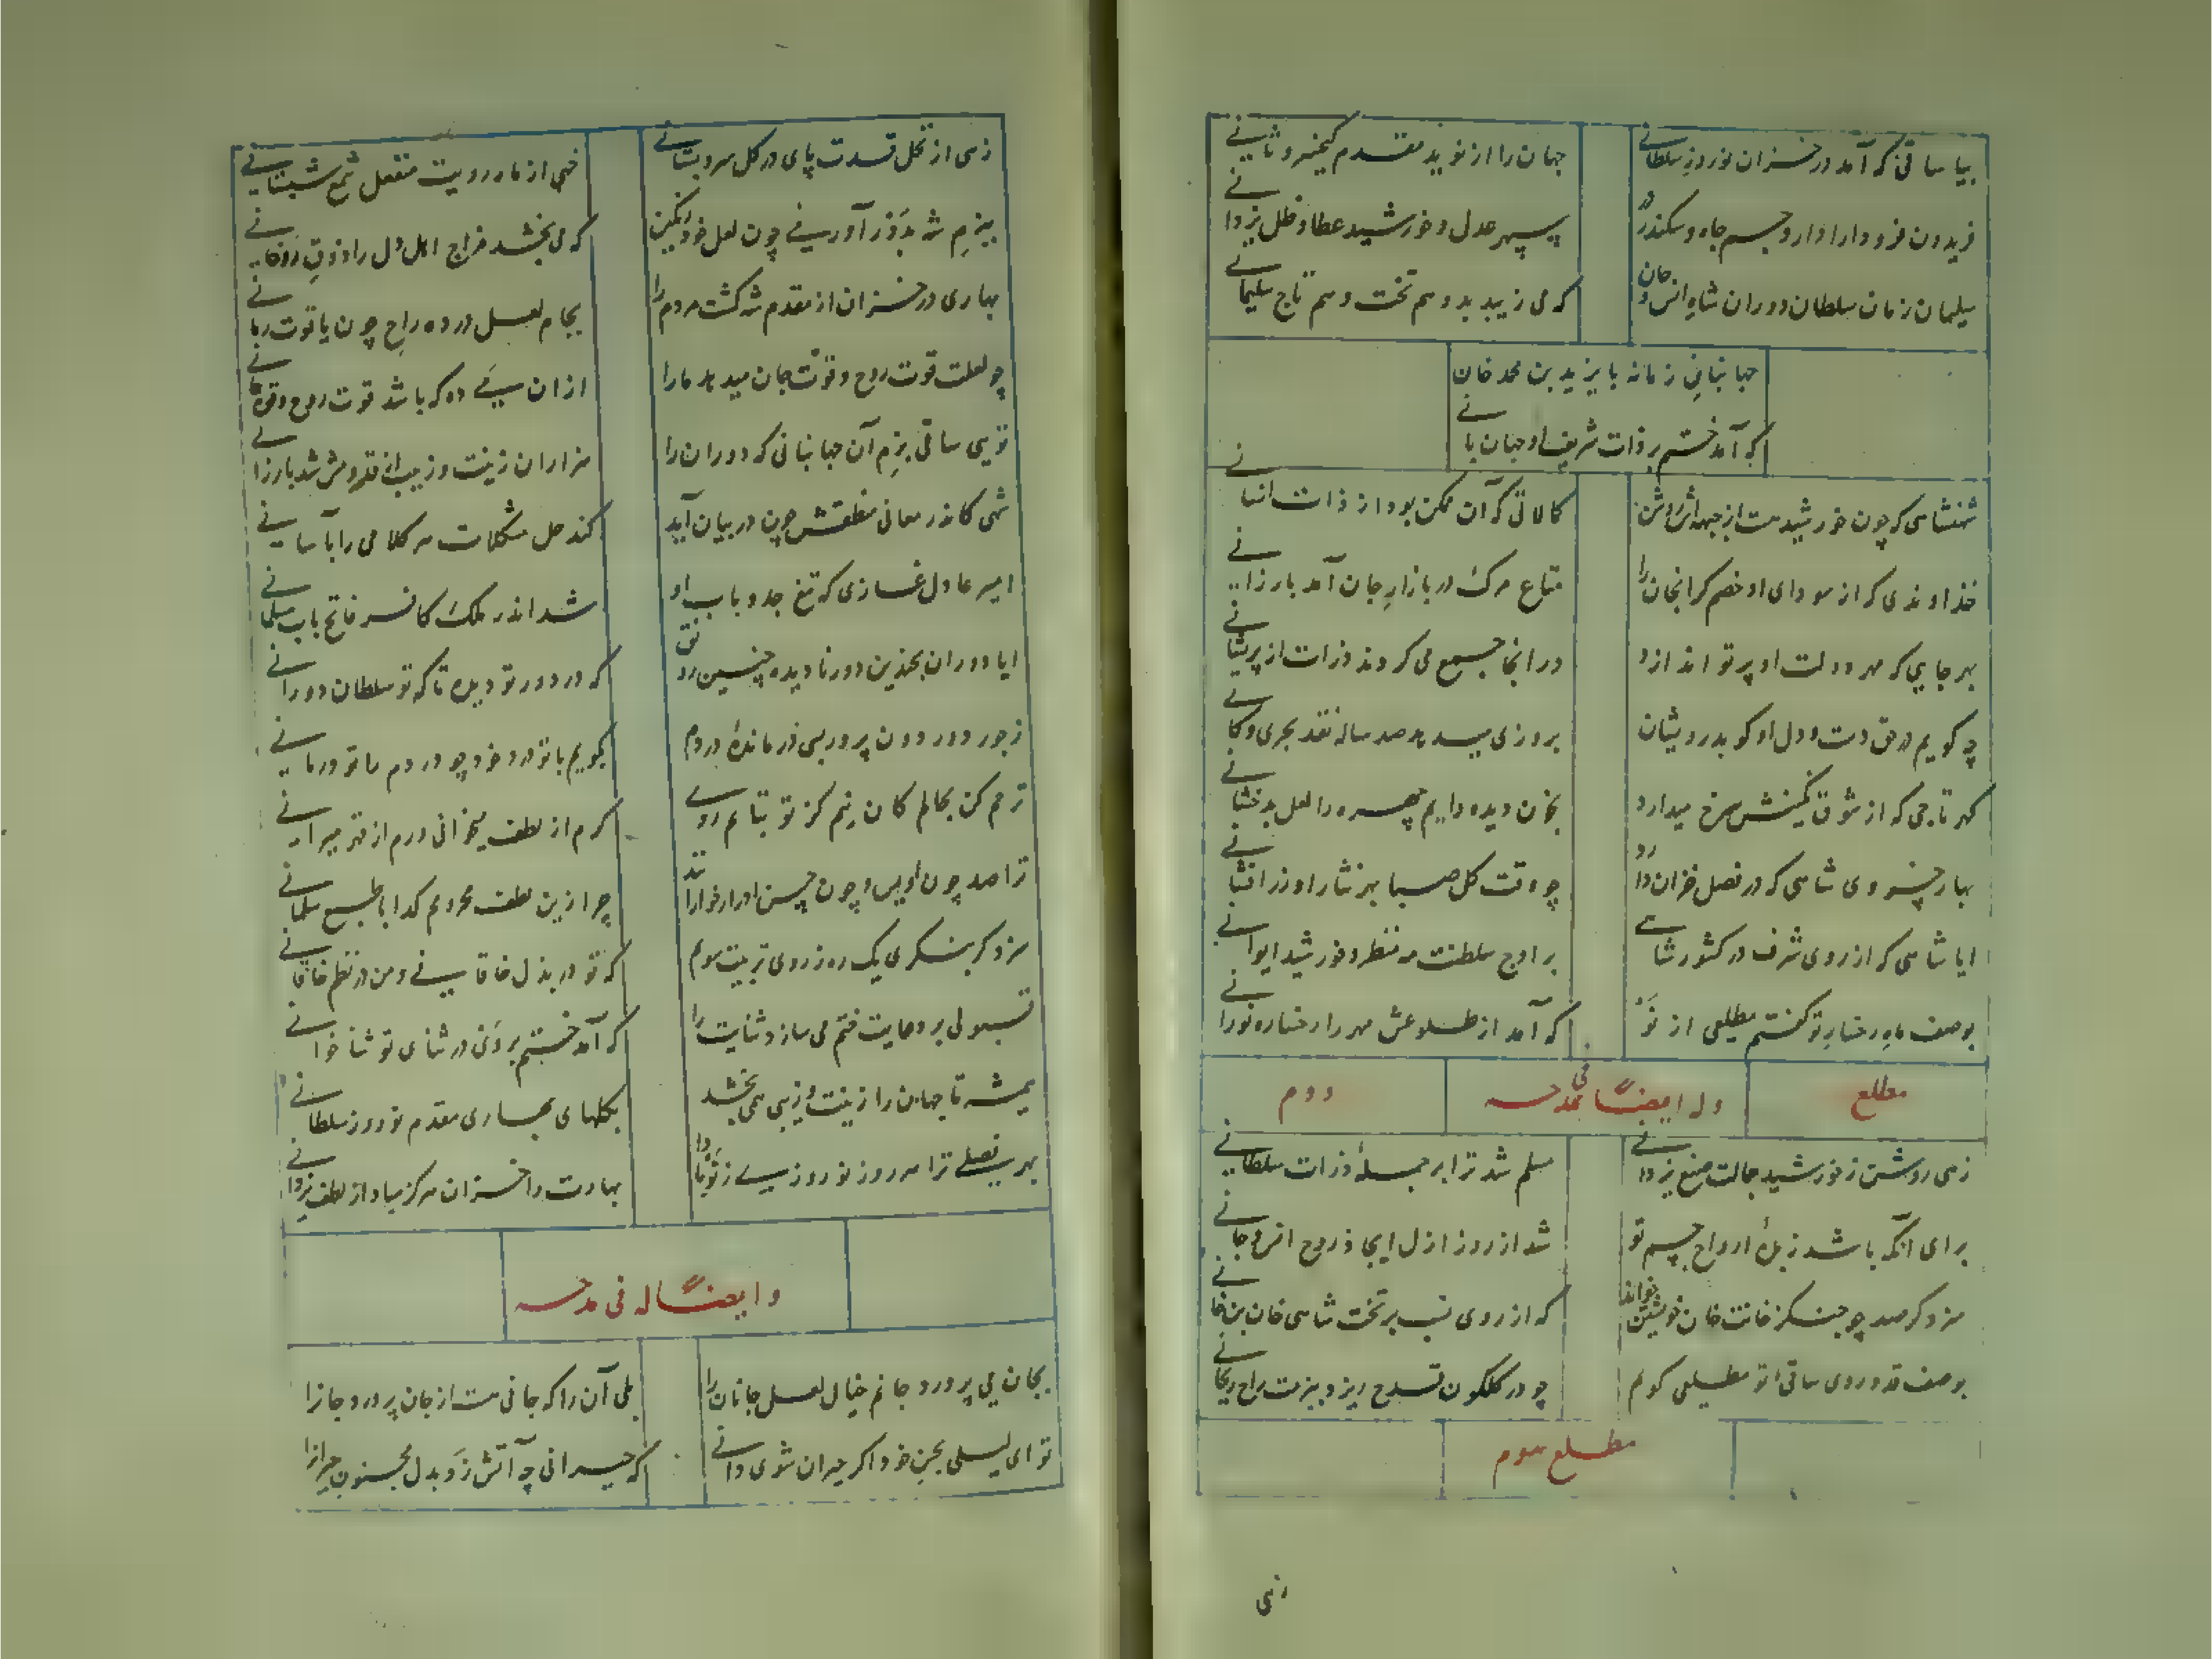 بیا ساقی که آمد در خزان نوروز سلطانی
جهان را از نوید مقدم کیخسرو ثانی
فریدون فر و دارا دار و جم جاه و سکندر در
سپهر عدل و خورشید عطا و ظل یزدانی
سلیمان زمان سلطان دوران شاه انس و جان
که می زیبد بدو هم تخت و هم تاج سلیمانی
جهانبانی زمانه بایزید بن محمد خان
که آمد ختم بر ذات شریف او جهان بانی
شهنشاهی که چون خورشید هست از جبهه اش روشن
کمالاتی که آن ممکن بود از ذات انسانی
خداوندی که از سودای او خصم کرانجان را
متاع مرک در بازار جان آمد بارزانی
بهر جایی که مهر دولت او پرتو اندازد
در انجا جمع می کردند ذرات از پریشانی
چه کویم در حق دست و دل او کو بدرویشان
بروزی میدهد صد ساله نقد بحری و کانی
کهر تاجی که از شوق نکینش سرخ میدارد
بخون دیده دایم چهره را لعل بدخشانی
بهار خسروی شاهی که در فصل خزان دارد
چو وقت کل صبا بهر نثار او زر افشانی
ایا شاهی که از روی شرف در کشور شاهی
بر اوج سلطنت مه منظر و خورشید ایوانی
بوصف ماه رخسار تو کفتم مطلعی از نو
که آمد از طلوعش مهر را رخساره نورانی
مطلع
وله ایضًا فی مدحه
دوم
زهی روشن ز خورشید جمالت صنع یزدانی
مسلم شد ترا بر جملهٔ ذرات سلطانی
برای آنکه باشد زبدهٔ ارواح جسم تو
شد از روز ازل ایجاد روح انس و جانی
سزد کر صد چو جنکز خانت خان خویشتن خوانند
که از روی نسب بر تخت شاهی خان بن خانی
بوصف قد و روی ساقی‌ا تو مطلعی کویم
چو در کلکون قدح ریزد ببزمت راح ریحانی
مطلع سوم
زهی
زهی از نخل قدت پای در کل سرو بستانی
خهی از ماه رویت منفعل شمع شبستانی
ببزم شه بدور آور میی چون لعل خود رنکین
که می بخشد مزاج اهل دل را ذوق روحانی
بهاری در خزان از مقدم شه کشت مردم را
بجام لعل در ده راح چون یاقوت رمانی
چو لعلت قوت روح و قوت جان میدهد ما را
از ان میی ده که باشد قوت روح و قوت
تویی ساقی بزم آن جهانبانی که دوران را
هزاران زینت و زیب از قدومش شد بارزانی
شهی کاندر معانی منطقش چون در بیان آید
کند حل مشکلات هر کلامی را بآسانی
امیر عادل غازی که تیغ جد و باب او
شد اندر ملک کافر فاتح باب مسلمانی
ایا دوران بچندین دور نادیده چنین رونق
که در دور تو دیده تا که تو سلطان دورانی
ز جور دور دون پرور بسی درماندهٔ دردم
نکویم با تو درد خود چو در دم را تو درمانی
ترحم کن بحالم کان نیم کز تو بتابم روی
کرم از لطف میخوانی ورم از قهر میرانی
ترا صد چون اویس و چون حسن ادرار خوارانند
چرا زین لطف محرومم کدا با طبع سلمانی
سزد کر بنکری یک ره ز روی تربیت سویم
که تو در بذل خاقانی و من در نظم خاقانی
قبولی بر دعایت ختم می سازد ثنایت را
که آمد ختم بر وی در ثنای تو ثنا خوانی
همیشه تا جهان را زینت و زیبی همی بخشد
بکلهای بهاری مقدم نوروز سلطانی
بهر فصلی ترا هر روز نوروزی ز نو بادا
بهارت را خزان هرکز مباد از لطف یزدانی
وایضًا له فی مدحه
بجان می پرورد جانم خیال لعل جانان را
بلی آن را که جانی هست از جان پرورد جانرا
تو ای لیلی بحسن خود اکر حیران شوی دانی
که حیرانی چه آتش زد بدل مجنون حیرانرا